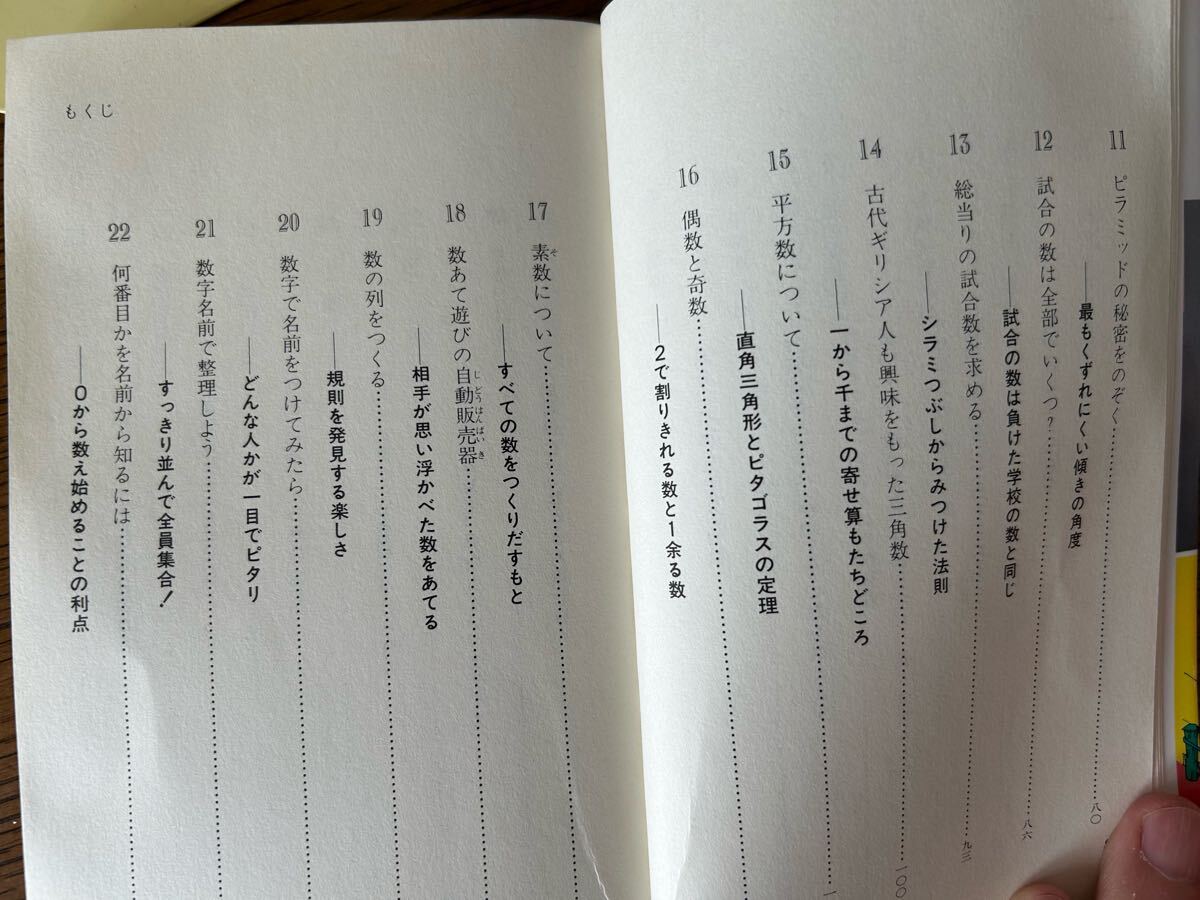 11 ピラミッドの秘密をのぞく…… 八〇
――最もくずれにくい傾きの角度
12 試合の数は全部でいくつ?…… 八六
――試合の数は負けた学校の数と同じ
13 総当りの試合数を求める…… 九三
――シラミつぶしからみつけた法則
14 古代ギリシア人も興味をもった三角数…… 一〇〇
――一から千までの寄せ算もたちどころ
15 平方数について……
――直角三角形とピタゴラスの定理
16 偶数と奇数……
――2で割りきれる数と1余る数
もくじ
17 素数について……
そ
――すべての数をつくりだすもと
18 数あて遊びの自動販売器……
じどうはんばいき
――相手が思い浮かべた数をあてる
19 数の列をつくる……
――規則を発見する楽しさ
20 数字で名前をつけてみたら……
――どんな人かが一目でピタリ
21 数字名前で整理しよう……
――すっきり並んで全員集合!
22 何番目かを名前から知るには……
――0から数え始めることの利点